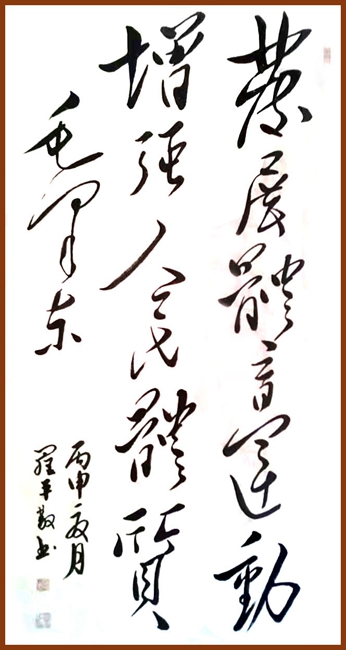 發展體育運動
增强人民體質
毛澤东
丙申六月
羅平敬书